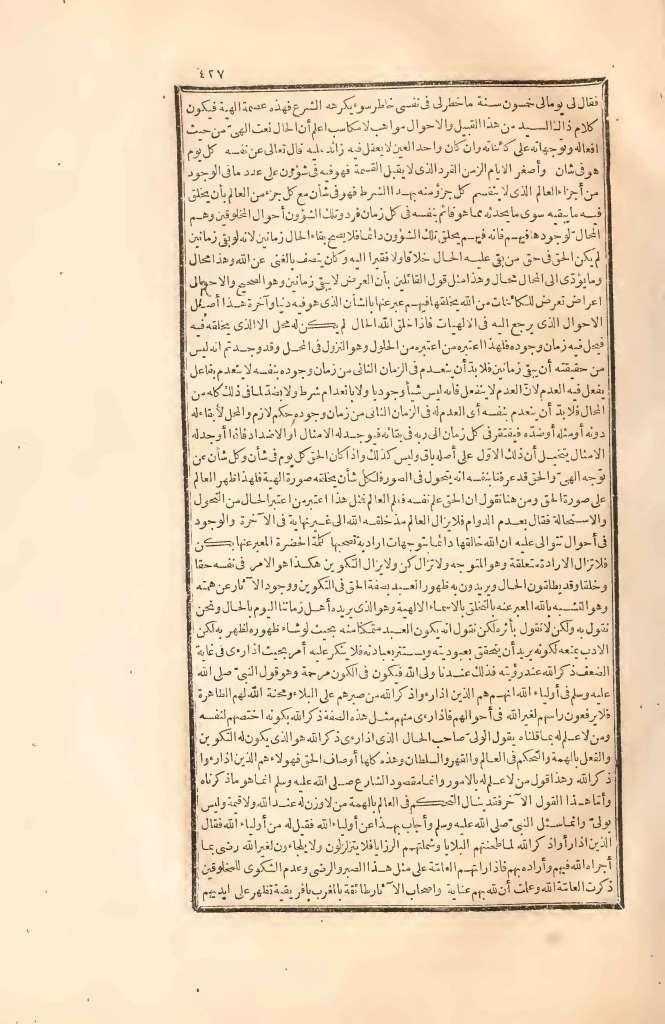 ٤٢٧
فقال لى يوما لى خمسون سنة ماخطر لى فى نفسى خاطر سوء يكرهه الشرع فهذه عصمة الهية فيكون
كلام ذلك السيد من هذا القبيل والاحوال مواهب لا مكاسب اعلم أن الحال نعت الهى من حيث
افعاله وتوجهاته على كائناته وان كان واحد العين لا يعقل فيه زائد عليه قال تعالى عن نفسه كل يوم
هو فى شان وأصغر الايام الزمن الفرد الذى لا يقبل القسمة فهو فيه فى شؤون على عدد ما فى الوجود
من أجزاء العالم الذى لا ينقسم كل جزء منه بهذا الشرط فهو فى شأن مع كل جزء من العالم بأن يخلق
فيه ما يبقيه سوى ما يحدثه مما هو قائم بنفسه فى كل زمان فرد وتلك الشؤون أحوال المخلوقين وهم
المحال لوجودها فيهم فانه فيهم يخلق تلك الشؤون دائما فلا يصح بقاء الحال زمانين لانه لو بقى زمانين
لم يكن الحق فى حق من بقى عليه الحال خلاقا ولا فقيرا اليه وكان يتصف بالغنى عن الله وهذا محال
وما يؤدى الى المحال محال وهذا مثل قول القائلين بأن العرض لا يبقى زمانين وهو الصحيح والاحوال
اعراض تعرض للكائنات من الله يخلقها فيهم عبر عنها بالشأن الذى هو فيه دنيا وآخرة هذا أصل
الاحوال الذى يرجع اليه فى الالهيات فاذا خلق الله الحال لم يكن له محل الا الذى يخلقه فيه
فيحل فيه زمان وجوده فلهذا اعتبره من اعتبره من الحلول وهو النزول فى المحل وقد وجد ثم انه ليس
من حقيقته أن يبقى زمانين فلا بد أن ينعدم فى الزمان الثانى من زمان وجوده بنفسه لا ينعدم بفاعل
يفعل فيه العدم لان العدم لا ينفعل فانه ليس شيأ وجوديا ولا بانعدام شرط ولا بضد لما فى ذلك كله من
المحال فلا بد أن ينعدم بنفسه أى العدم له فى الزمان الثانى من زمان وجوده حكم لازم والمحل لا بقاء له
دونه أو مثله أو ضده فيفتقر فى كل زمان الى ربه فى بقائه فيوجد له الامثال أو الاضداد فاذا أوجد له
الامثال يتخيل أن ذلك الاول على أصله باق وليس كذلك واذا كان الحق كل يوم فى شأن وكل شأن عن
توجه الهى والحق قد عرفنا بنفسه انه يتحول فى الصور فلكل شأن يخلقه صورة الهية فلهذا ظهر العالم
على صورة الحق ومن هنا نقول ان الحق علم نفسه فعلم العالم فمثل هذا اعتبر من اعتبر الحال من التحول
والاستحالة فقال بعدم الدوام فلا يزال العالم مذ خلقه الله الى غير نهاية فى الآخرة والوجود
فى أحوال تتوالى عليه الله خالقها دائما بتوجهات ارادية تصحبها كلمة الحضرة المعبر عنها بكن
فلا تزال الارادة متعلقة وهو المتوجه ولا تزال كن ولا يزال التكوين هكذا هو الامر فى نفسه حقا
وخلقا وقد يطلقون الحال ويريدون به ظهور العبد بصفة الحق فى التكوين ووجود الآثار عن همته
وهو التشبه بالله المعبر عنه بالتخلق بالاسماء الالهية وهو الذى يريده أهل زماننا اليوم بالحال ونحن
نقول به ولكن لا نقول بأثره لكن نقول انه يكون العبد متمكنا منه بحيث لو شاء ظهوره لظهر به لكن
الادب يمنعه لكونه يريد أن يتحقق بعبوديته ويستتر بعبادته فلا ينكر عليه أمر بحيث اذا رءى فى غاية
الضعف ذكر الله عند رؤيته فذلك عندنا ولى الله فيكون فى الكون مرحمة وهو قول النبى صلى الله
عليه وسلم فى أولياء الله انهم هم الذين اذا رءوا ذكر الله من صبرهم على البلاء ومحنة الله لهم الظاهرة
فلا يرفعون راسهم لغير الله فى أحوالهم فاذا رءى منهم مثل هذه الصفة ذكر الله بكونه اختصهم لنفسه
ومن لا علم له بما قلناه يقول الولى صاحب الحال الذى اذا رءى ذكر الله هو الذى يكون له التكوين
والفعل بالهمة والتحكم فى العالم والقهر والسلطان وهذه كلها أوصاف الحق فهولاء هم الذين اذا رءوا
ذكر الله وهذا قول من لا علم له بالامور وانما مقصود الشارع صلى الله عليه وسلم انما هو ما ذكرناه
وأما هذا القول الآخر فقد ينال التحكم فى العالم بالهمة من لا وزن له عند الله ولا قيمة وليس
بولى وانما سئل النبى صلى الله عليه وسلم وأجاب بهذا عن أولياء الله فقيل له من أولياء الله فقال
الذين اذا رأوا ذكر الله لما طحنتهم البلايا وشملتهم الرزايا فلا يتزلزلون ولا يلجاءون لغير الله رضى بما
أجراه الله فيهم وأراده بهم فاذا راتهم العامة على مثل هذا الصبر والرضى وعدم الشكوى للمخلوقين
ذكرت العامة الله وعلمت أن لله بهم عناية واصحاب الآثار طائفة بالمغرب بافريقية تظهر على ايديهم